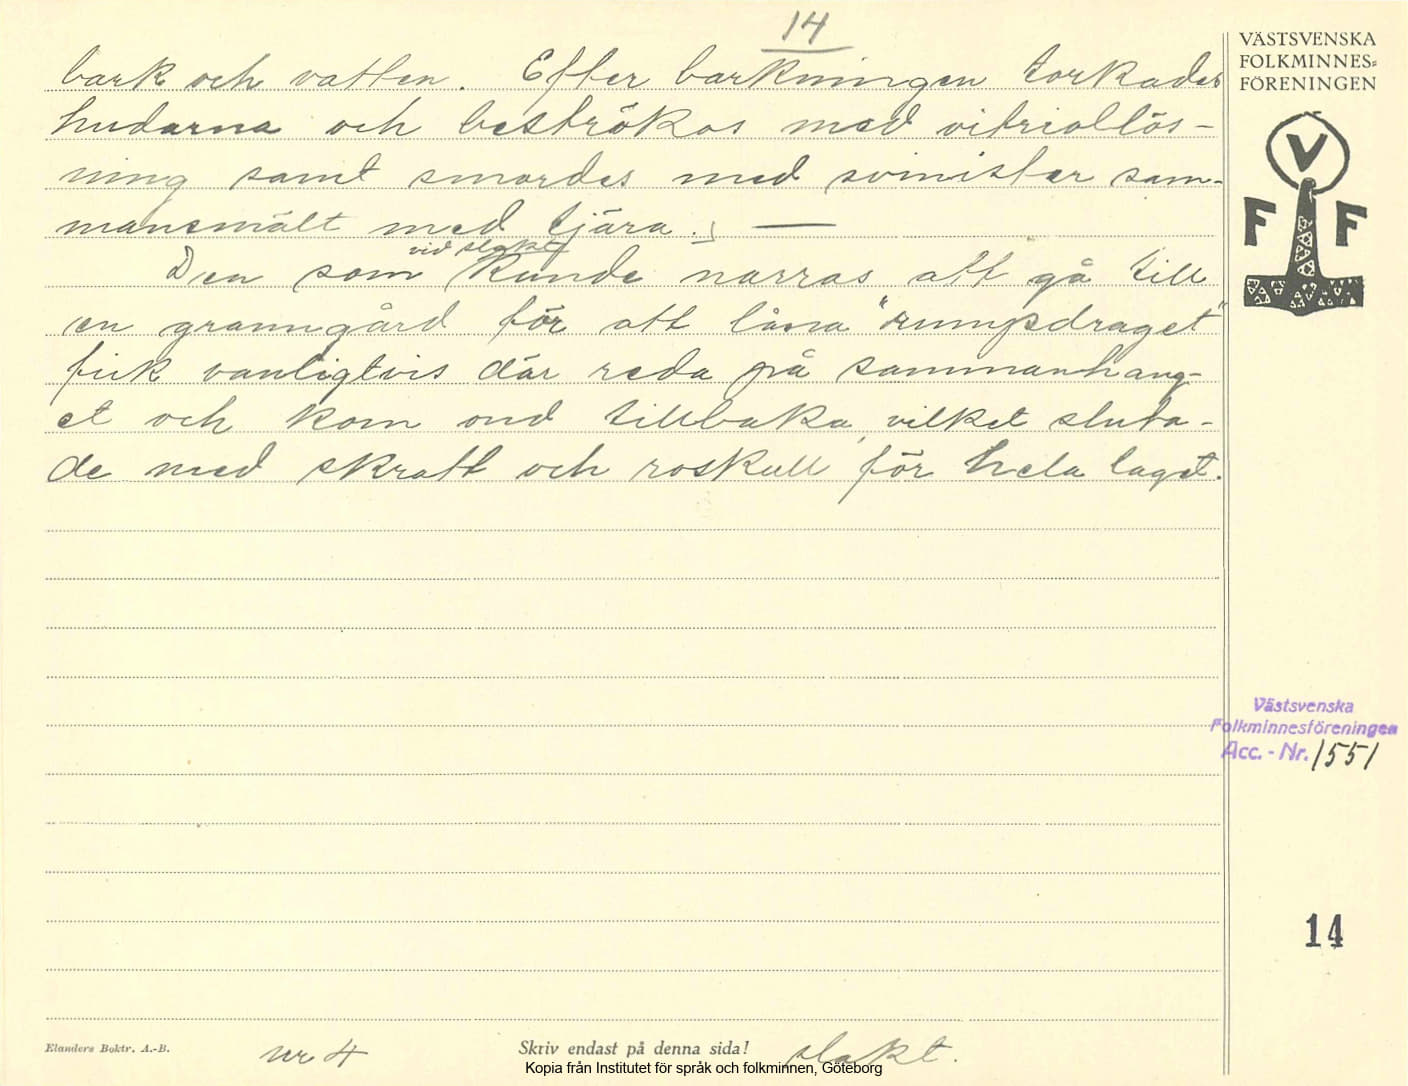 14
bark och vatten. Efter barkningen torkades
hudarna och beströkos med vitriollös-
ning samt smordes med svinister sam-
mansmält med tjära. —
vid slakt
Den som kunde narras att gå till
en granngård för att låna "rumpdraget"
fick vanligtvis där reda på sammanhang-
et och kom ond tillbaka, vilket sluta-
de med skratt och roskull för hela laget.
VÄSTSVENSKA
FOLKMINNES=
FÖRENINGEN
V
F F
Västsvenska
Folkminnesföreningen
Acc. - Nr. 1551
14
Elanders Boktr. A.-B.
nr 4
Skriv endast på denna sida!
slakt.
Kopia från Institutet för språk och folkminnen, Göteborg